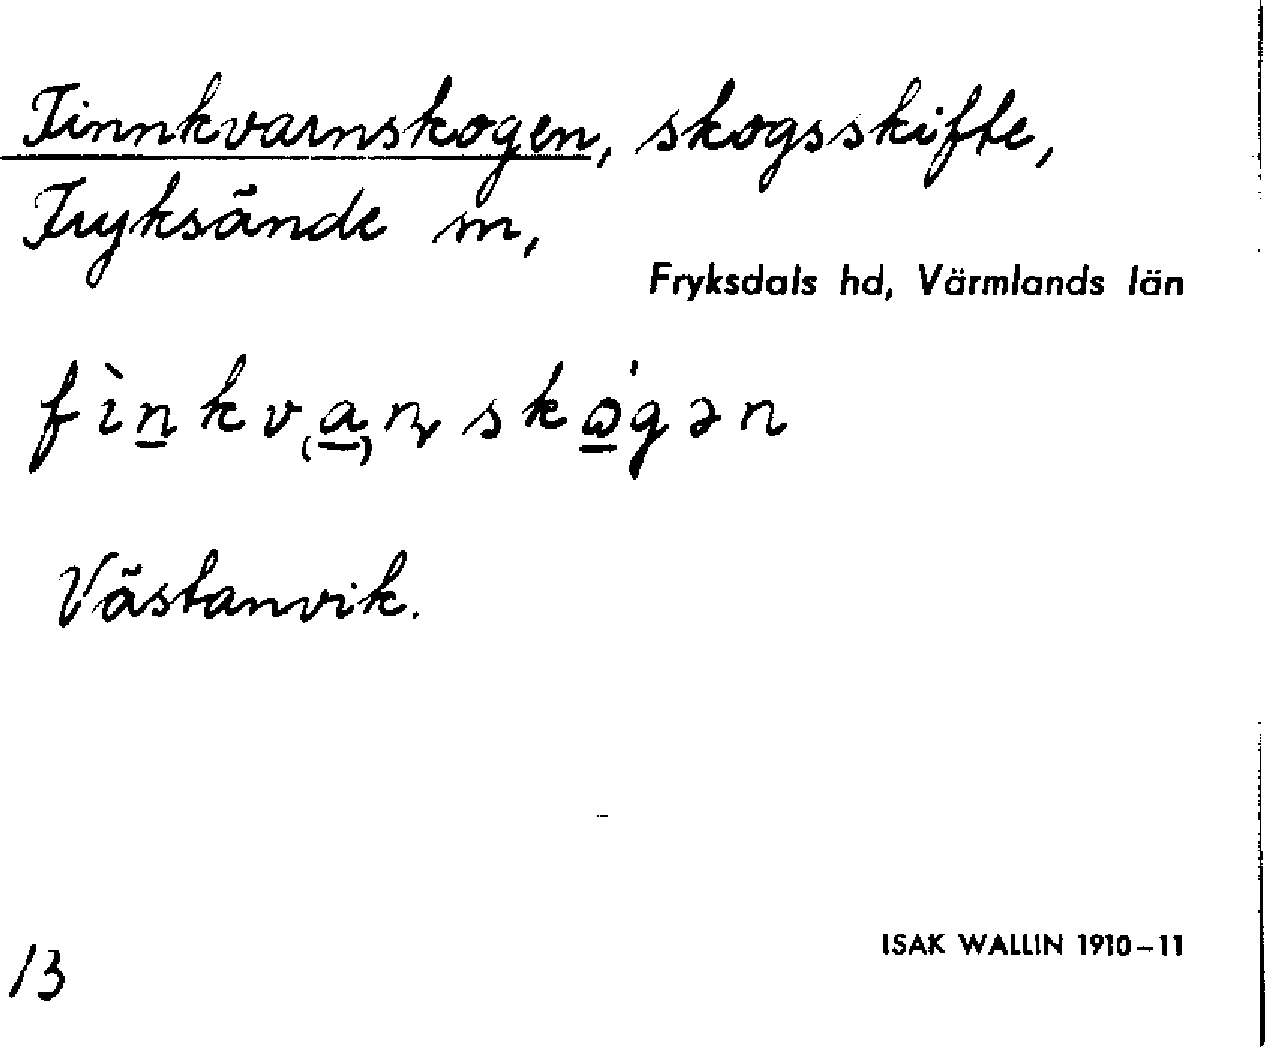 Finnkvarnskogen, skogsskifte,
Fryksände sn,
Fryksdals hd, Värmlands län
fìnkv(a)ɳskǫ̀gən
Västanvik.
ISAK WALLIN 1910–11
13